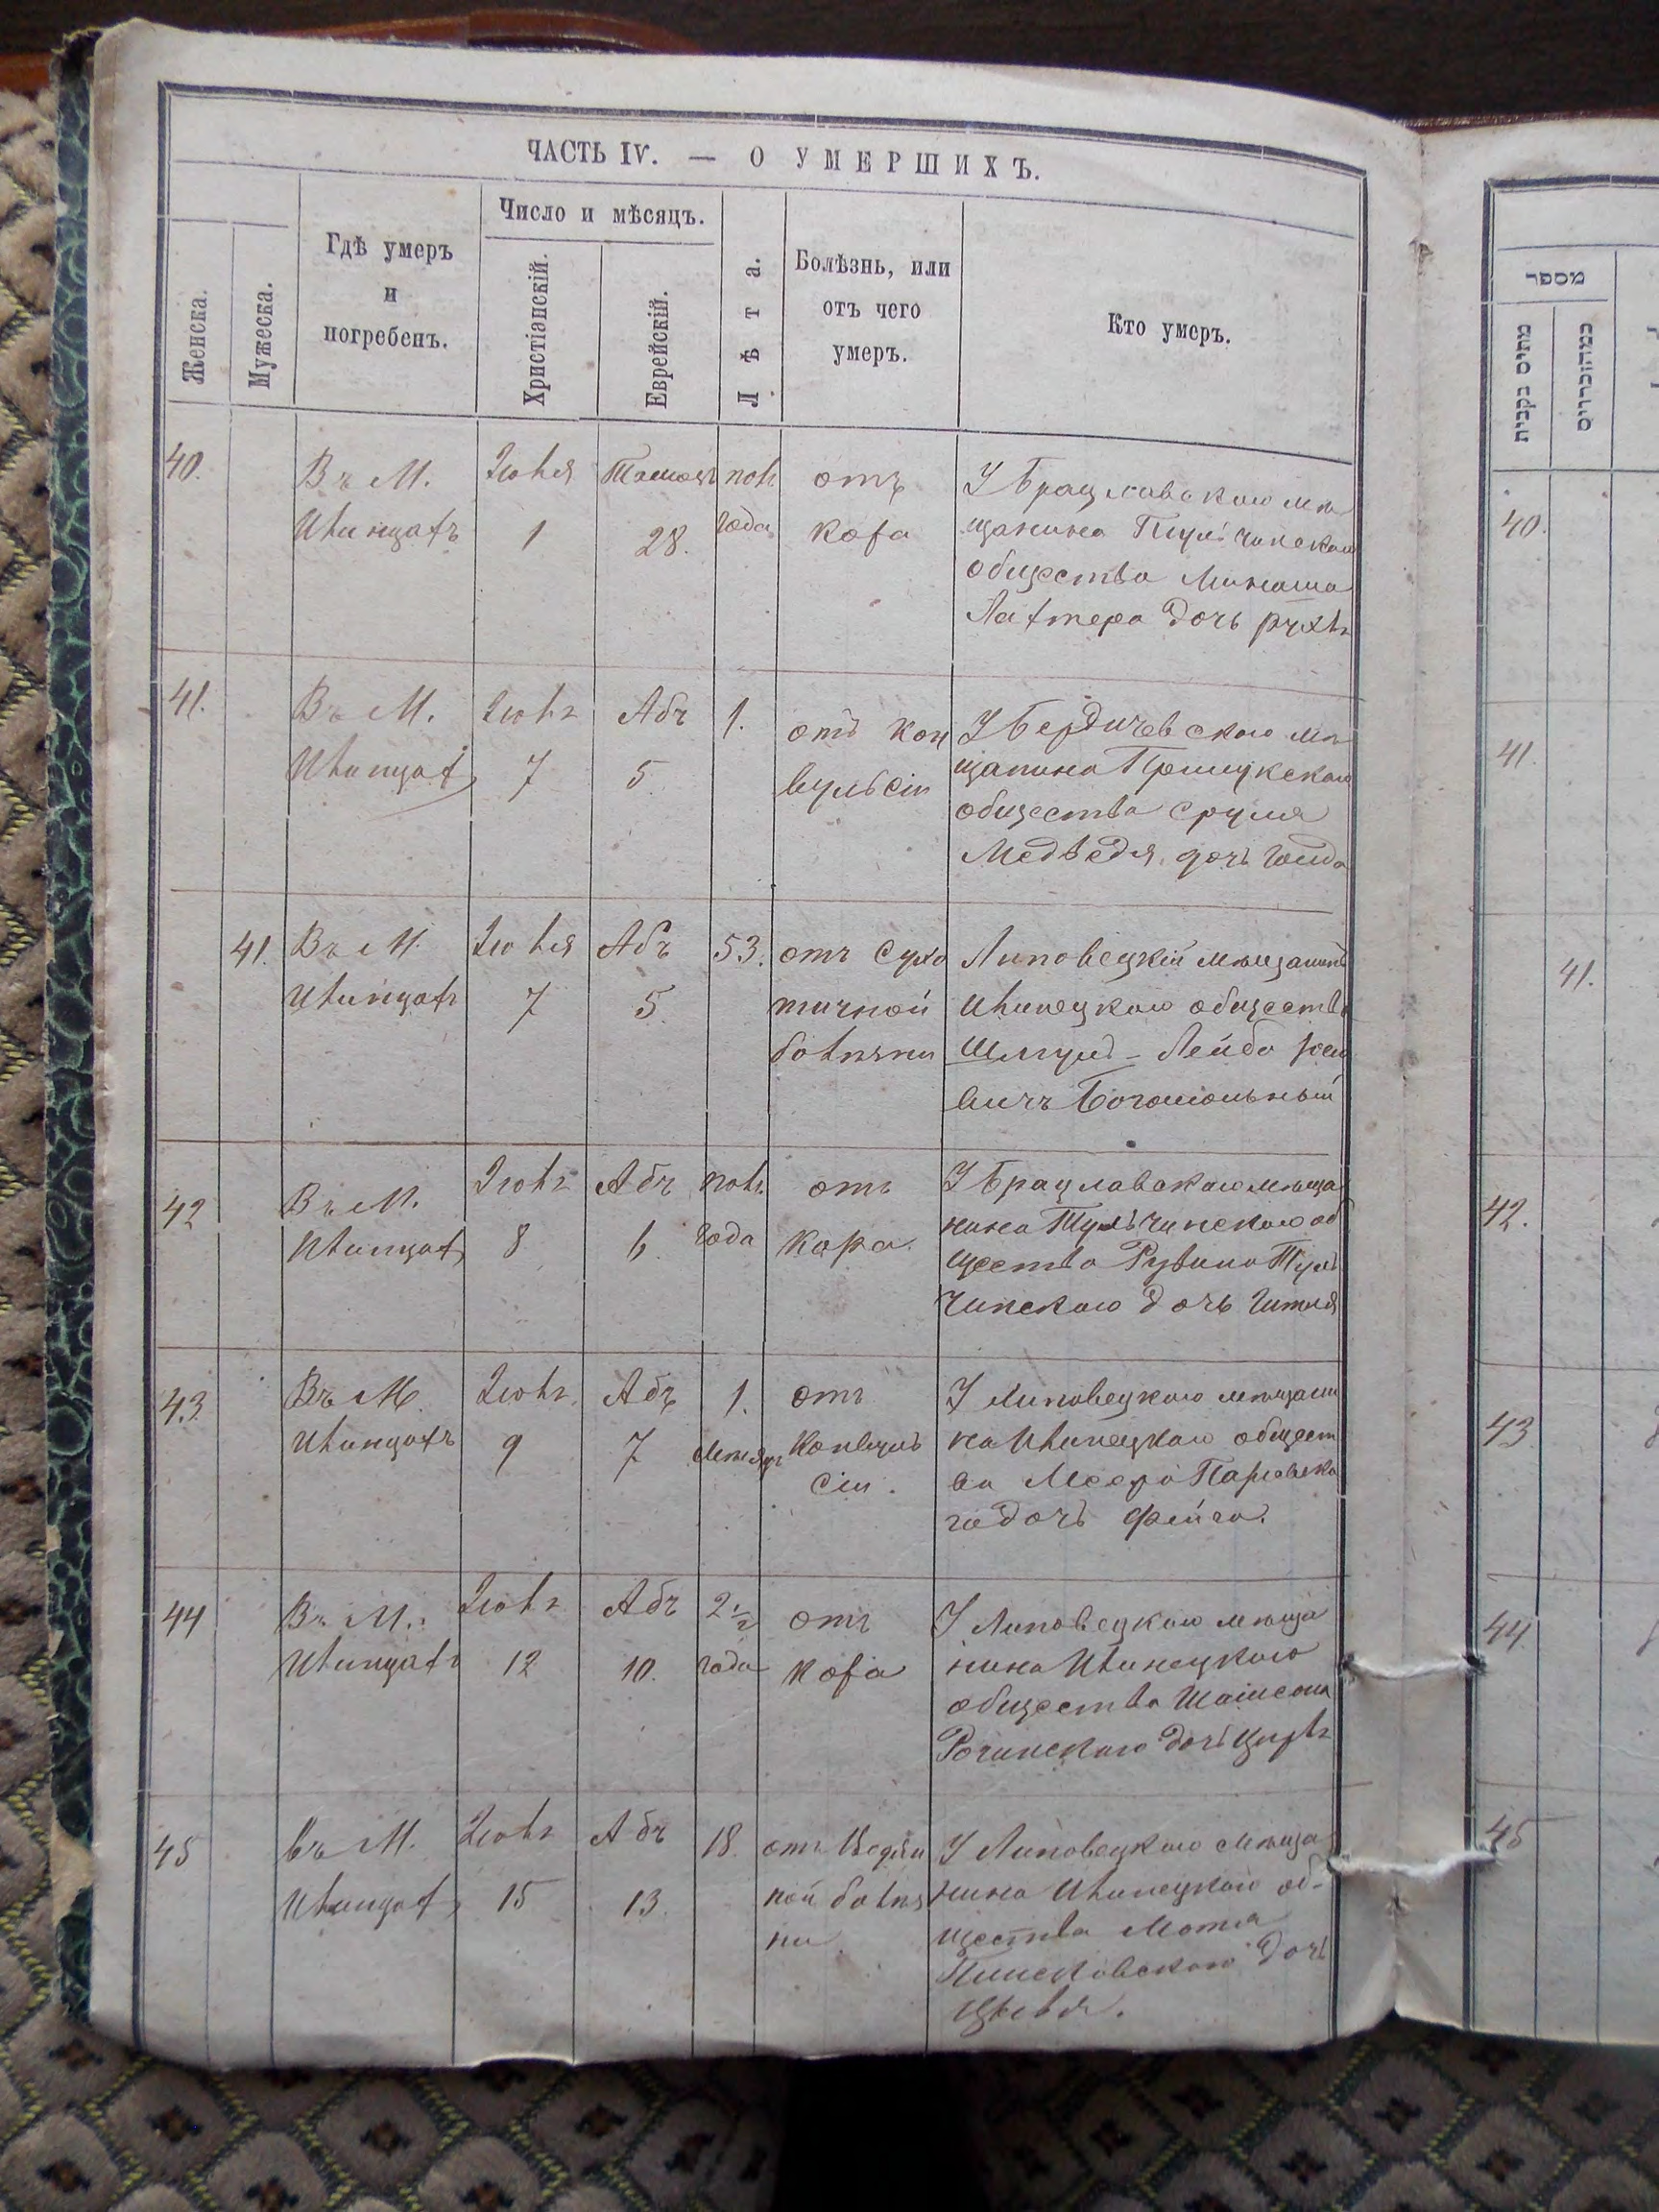 ЧАСТЬ IV. — О УМЕРШИХЪ.
Женска.
Мужеска.
Гдѣ умеръ
и
погребенъ.
Число и мѣсяцъ.
Христіанскій.
Еврейскій.
Лѣта.
Болѣзнь, или
отъ чего
умеръ.
Кто умеръ.
40.
Въ М.
Илинцахъ
Іюля
1
28.
пол.
года
отъ
кора
У Брацлавскаго мѣ
щанина Тульчинскаго
общества
дочь Рухля
41.
Въ М.
Илинцах
Іюля
7
Абъ
5.
1.
отъ кон
вульсіи
У Бердичевскаго мѣ
щанина
общества Сруля
Медведя дочь
41.
Въ М.
Илинцахъ
Іюля
7
Абъ
5.
53.
отъ сухо
тичной
болѣзни
Липовецкій мѣщанинъ
Илинецкаго общества
Шмуль - Лейба
вичъ Богомольный
42
Въ М.
Илинцах
Іюля
8
Абъ
6.
пол.
года
отъ
кора.
У Брацлавскаго мѣща
нина Тульчинскаго об
щества Рувина Туль
чинскаго дочь Гитля
43
Въ М.
Илинцахъ
Іюля
9
Абъ
7
1.
отъ
конвуль
сіи.
У Липовецкаго мѣщани
на Илинецкаго общест
ва Меера
го дочь Фейга.
44
Въ М.
Илинцахъ
Іюля
12
Абъ
10.
2 1/2
года
отъ
кора
У Липовецкаго мѣща
нина Илинецкаго
общества
дочь
45
Въ М.
Илинцах
Іюля
15
Абъ
13.
18.
отъ
ной болѣз
ни.
У Липовецкаго мѣща
нина Илинецкаго об-
щества
дочь
מספר
40.
41.
41.
42.
43
44.
45